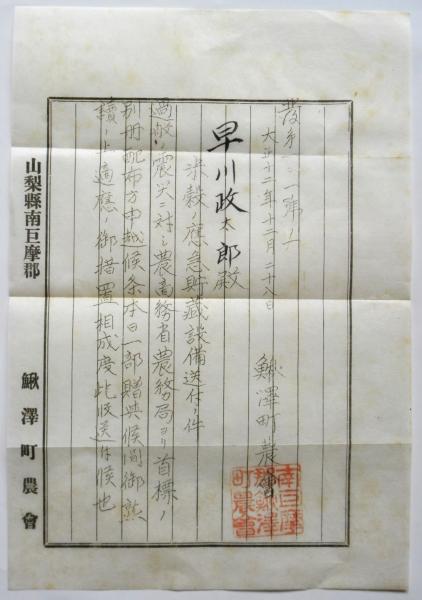 発第一二一號ノ一
大正十二年十二月二十八日
鰍澤町農會
早川政太郎殿
米穀ノ應急貯藏設備送付ノ件
過般ノ震災ニ対シ農商務省農務局ヨリ首標ノ
別冊配布方申越候条本日一部贈呉候間御熟
讀ノ上適應ノ御措置相成度此段送付候也
山梨縣南巨摩郡 鰍澤町農會
南巨摩
郡鰍澤
町農會